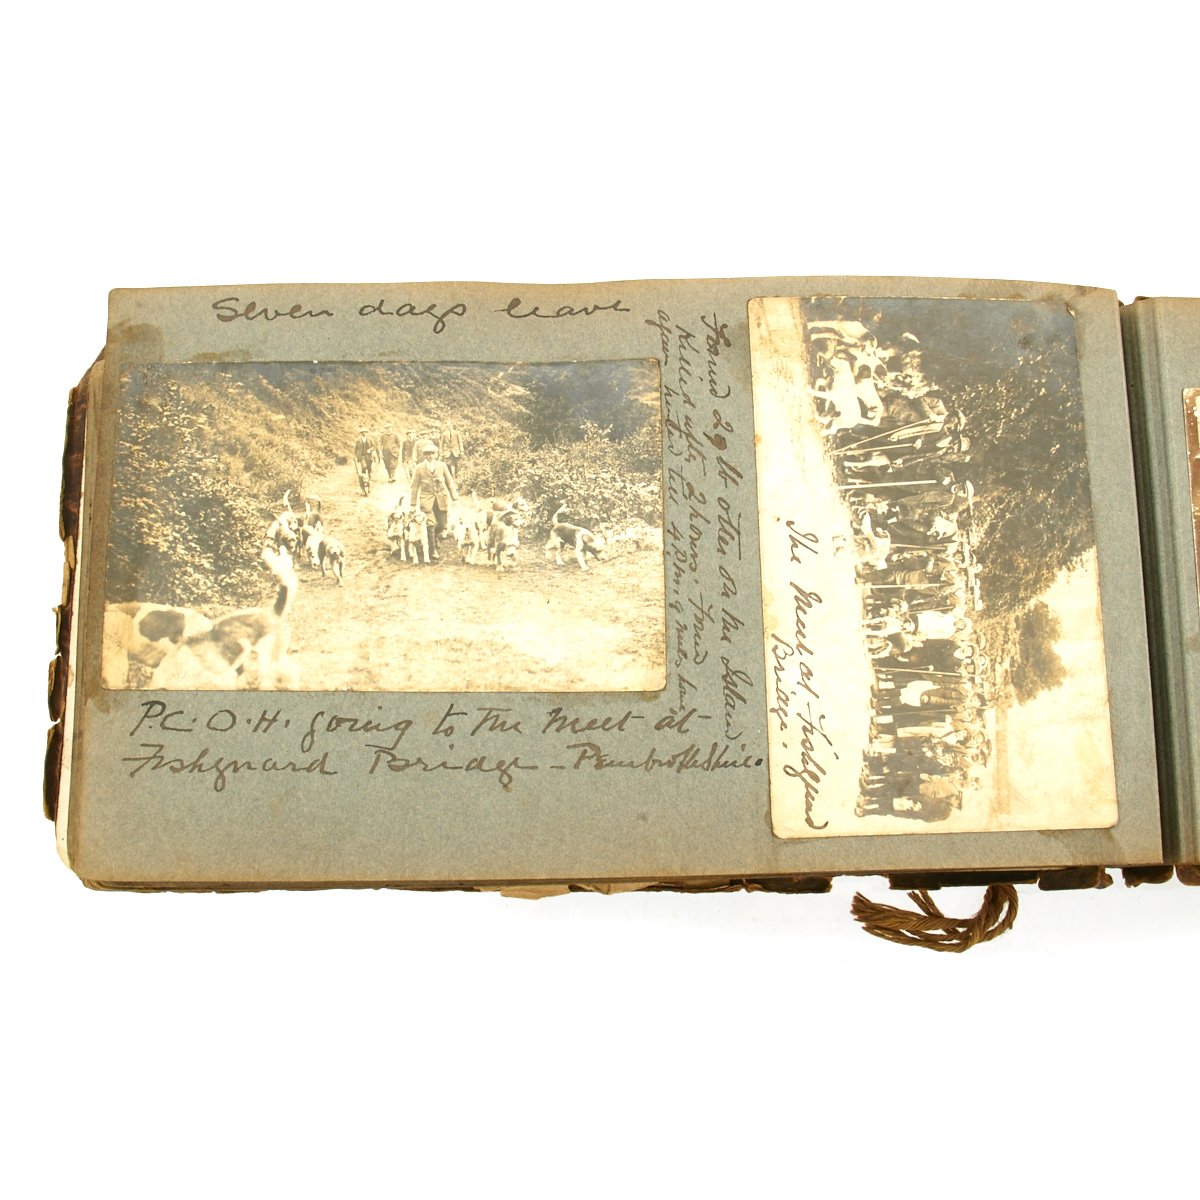 Seven days leave
P.C.O.H. going to the meet at
Fishguard Bridge - Pembrokeshire.
Found 29 lb otter on the Island
Killed after 2 hours. Found
again hunted till 4 P.M. 9 mets
The Meet at Fishguard
Bridge.